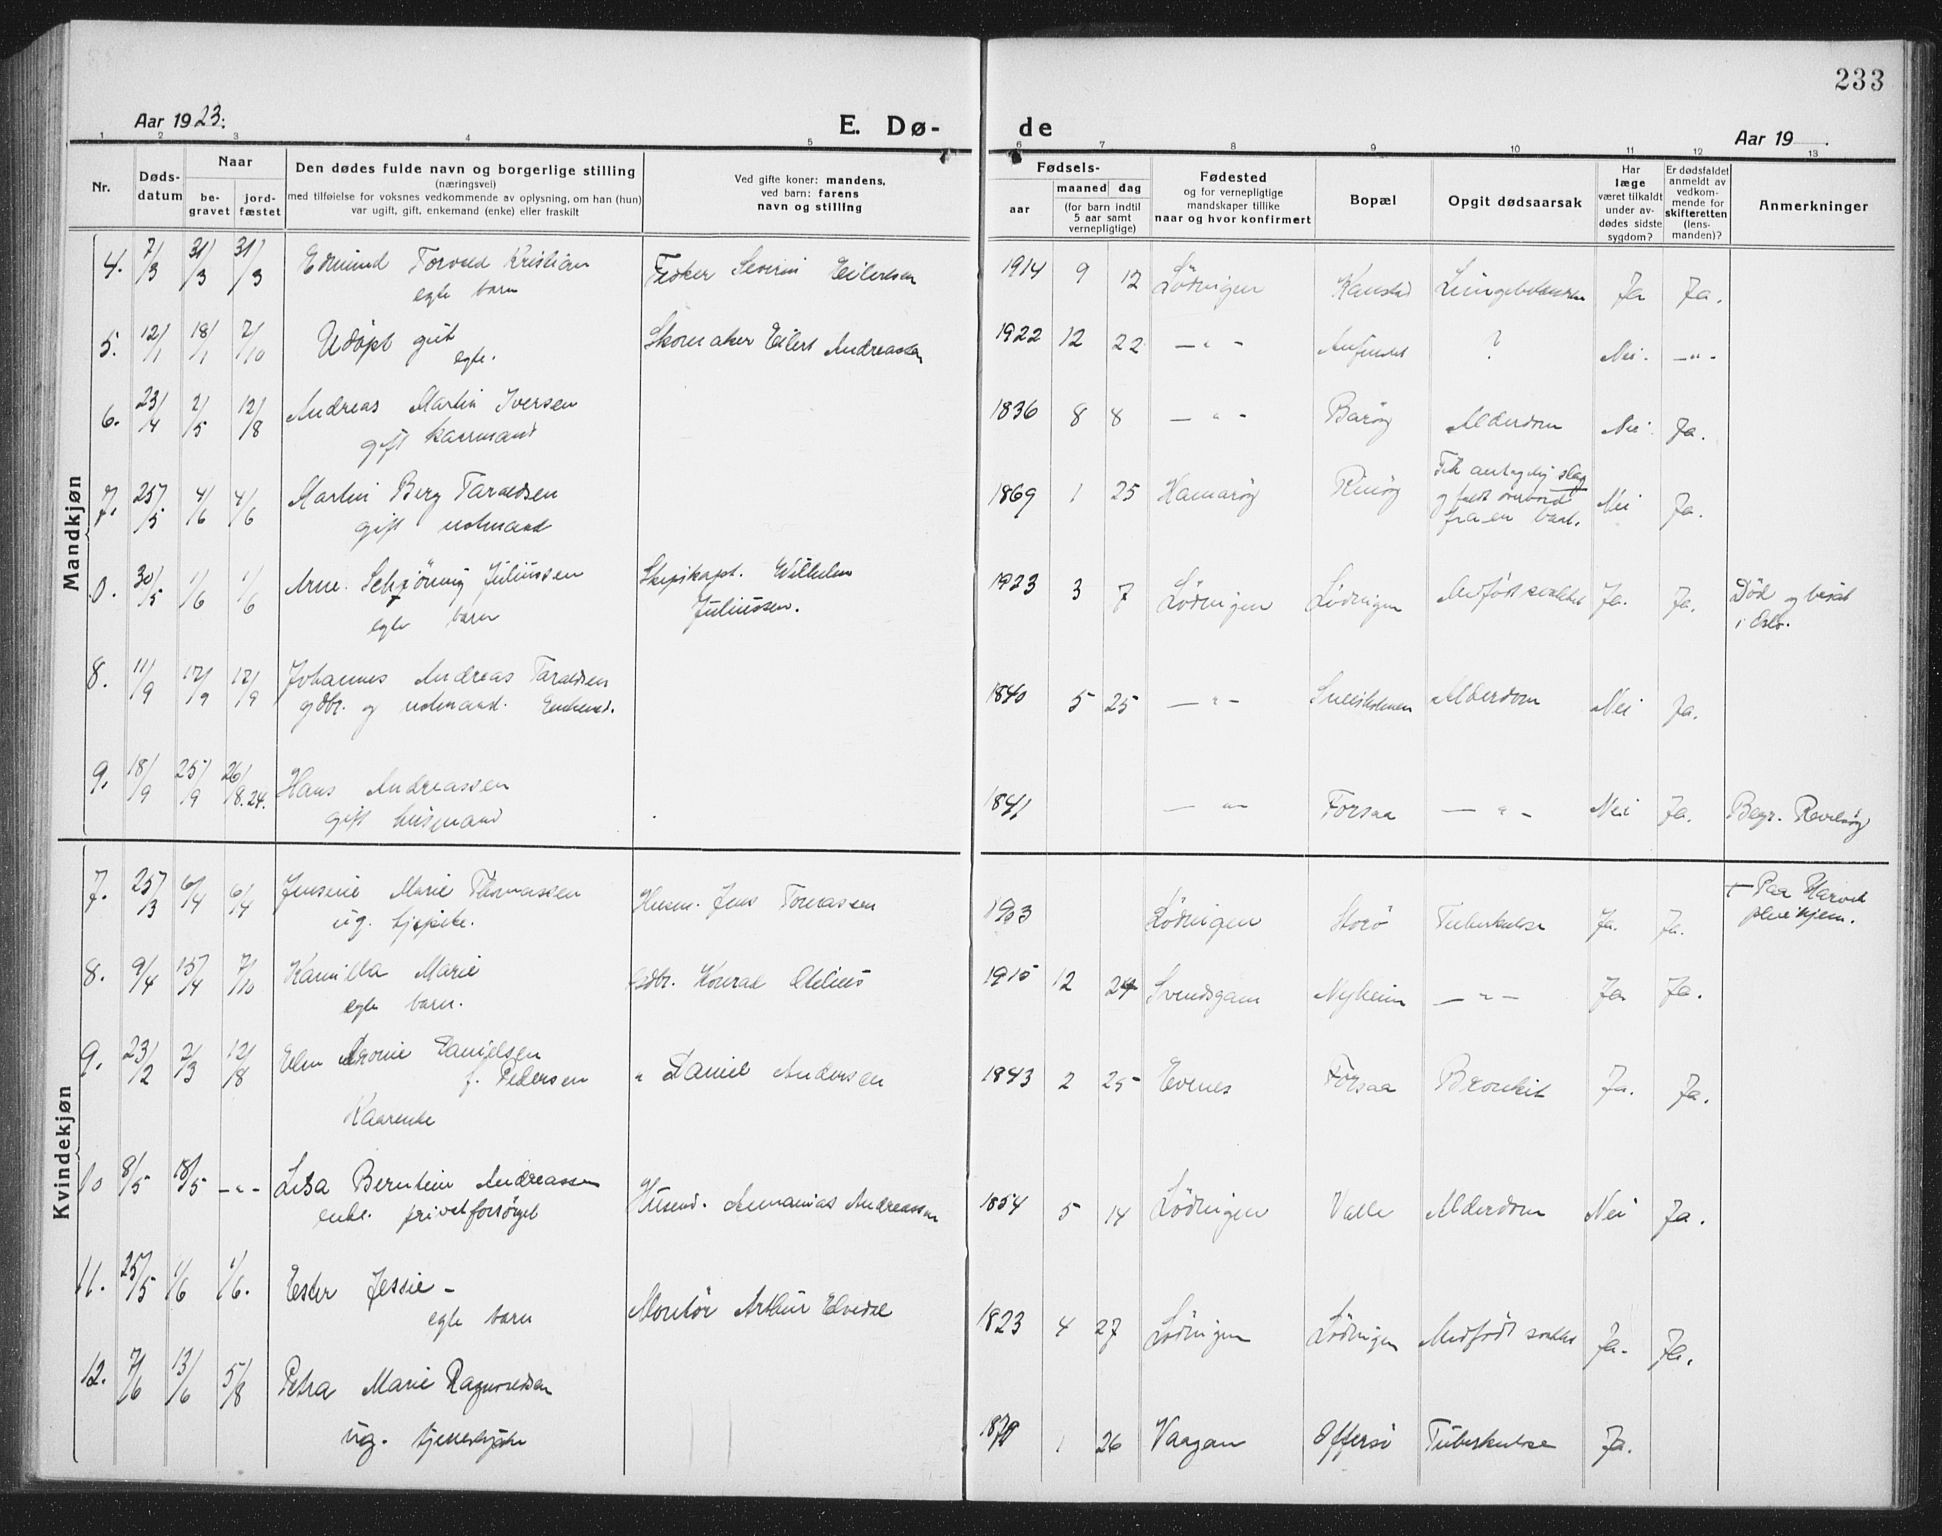 233
Aar 1923.
E. Dø-
de
Aar 19
1 2 3 4 5 6 7 8 9 10 11 12 13
Nr.
Døds-
datum
Naar
be-
gravet
jord-
fæstet
Den dødes fulde navn og borgerlige stilling
(næringsvei)
med tilføielse for voksnes vedkommende av oplysning, om han (hun)
var ugift, gift, enkemand (enke) eller fraskilt
Ved gifte koner: mandens,
ved barn: farens
navn og stilling
Fødsels-
aar
maaned dag
(for barn indtil
5 aar samt
vernepligtige)
Fødested
og for vernepligtige
mandskaper tillike
naar og hvor konfirmert
Bopæl
Opgit dødsaarsak
Har
læge
været tilkaldt
under av-
dødes sidste
sygdom?
Er dødsfaldet
anmeldt av
vedkom-
mende for
skifteretten
(lens-
manden)?
Anmerkninger
Mandkjøn
4. 7/3 31/3 31/3 Edmund Torvud Kristian Fisker Severin Eilertsen 1914 9 12 Lødingen Kanstad Ja Ja.
egte barn
5. 12/1 18/1 7/10 Udøpt gut Skomaker Eilert Andreassen 1922 12 22 — " — ? Nei. — " —
egte.
6. 23/4 2/5 12/8 Andreas Martin Iversen 1836 8 8 — " — Barøy Alderdom Nei. Ja.
gift kaarmand
7. 25/5 4/6 4/6 Martin Berg Taraldsen 1869 1 25 Hamarøy Rinøy Fik antagelig slag Nei Ja.
gift og faldt overbord
fra en baat.
0. 30/5 1/6 1/6 Arne Schjönning Juliussen Skipskapt. Wilhelm 1923 3 7 Lødingen Lødingen Medfødt svakhet Ja. Ja. Død og bisat
egte barn Juliussen. i Oslo.
8. 11/9 17/9 17/9 Johannes Andreas Taraldsen 1840 5 25 — " — Alderdom Nei Ja.
gdbr. og Enkemd.
9. 18/9 25/9 26/8.24. Hans Andreassen 1841 — " — Forsaa — " — Nei Ja. Begr.
gift husmand
Kvindekjøn
7. 25/3 6/4 6/4 Jensine Marie Thomassen Husm. Jens Tomassen 1903 Lødingen Storø Tuberkulose Ja. Ja. + Paa Harstad
ug. pleiehjem.
8. 9/4 15/4 7/10 Kamilla Marie Gdbr. Konrad 1915 12 24 Svendsgam Nyheim — " — Ja. Ja.
egte barn.
9. 23/2 2/3 12/8 Danielsen " Daniel Andersen 1843 2 25 Evenes Forsaa Bronkit Ja. Ja.
f. Pedersen
Kaarenke
10 8/5 18/5 — " — Lisa Berntine Andreassen Husmd. Annanias Andreassen 1854 5 14 Lødingen Valle Alderdom Nei Ja.
enke. privat forsørget
11. 25/5 1/6 1/6. Ester Jessie — Montör Arthur Elvedal 1823 4 27 Lødingen Lødingen Medfødt svakhet Ja. Ja.
egte barn
12. 7/6 13/6 5/8 Petra Marie Ragnvaldsen 1879 1 26 Vaagan Offersø Tuberkulose Ja.
ug. tjenestepike